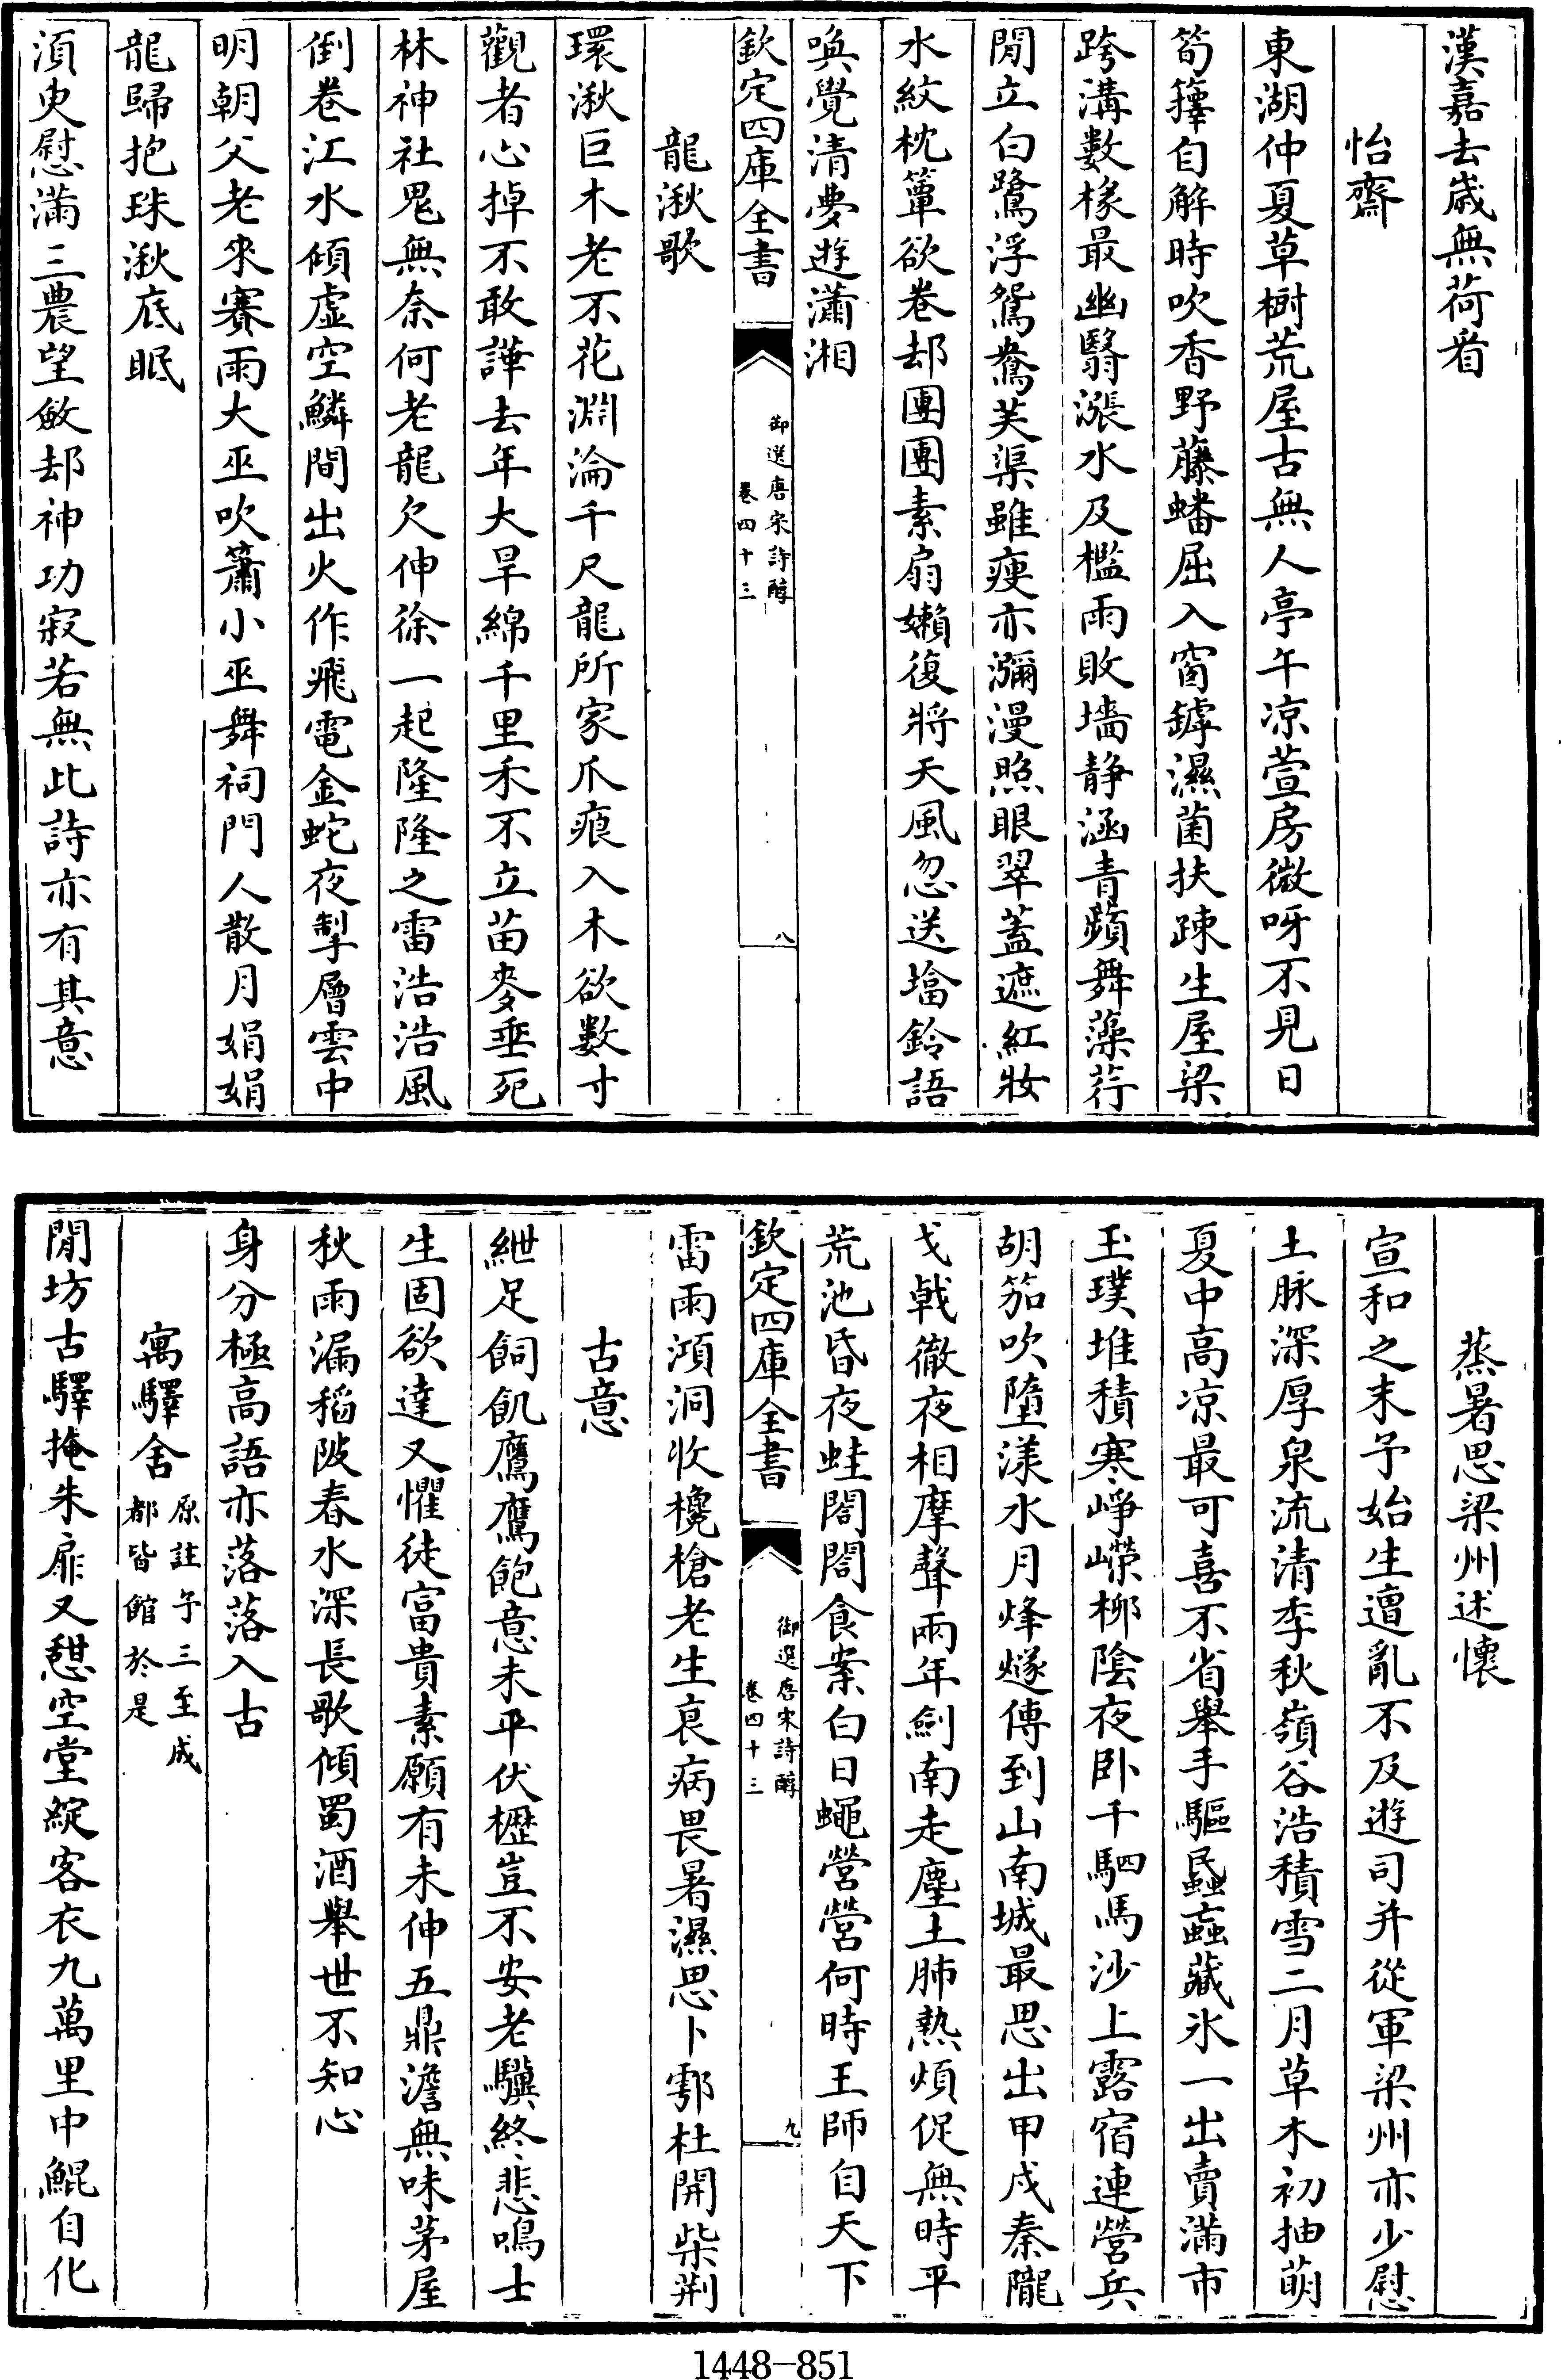 漢嘉去嵗無荷看
怡齋
東湖仲夏草樹荒屋古無人亭午凉萱房微呀不見日
筍籜自解時吹香野藤蟠屈入窗罅濕菌扶踈生屋梁
跨溝數椽最幽翳漲水及檻雨敗墻静涵青蘋舞藻荇
閒立白鷺浮鴛鴦芙蕖雖瘦亦瀰漫照眼翠蓋遮紅妝
水紋枕簟欲卷却團團素扇嬾復將天風忽送塔鈴語
喚覺清夢遊瀟湘
欽定四庫全書
御選唐宋詩醇
卷四十三
八
龍湫歌
環湫巨木老不花淵淪千尺龍所家爪痕入木欲數寸
觀者心掉不敢譁去年大旱綿千里禾不立苗麥垂死
林神社鬼無奈何老龍欠伸徐一起隆隆之雷浩浩風
倒卷江水傾虛空鱗間出火作飛電金蛇夜掣層雲中
明朝父老來賽雨大巫吹簫小巫舞祠門人散月娟娟
龍歸抱珠湫底眠
湏臾慰滿三農望斂却神功寂若無此詩亦有其意
蒸暑思梁州述懷
宣和之末予始生遭亂不及遊司并從軍梁州亦少慰
土脉深厚泉流清季秋嶺谷浩積雪二月草木初抽萌
夏中高凉最可喜不省舉手驅蟁蝱藏氷一出賣滿市
玉璞堆積寒崢嶸柳陰夜卧千駟馬沙上露宿連營兵
胡笳吹墮漾水月烽燧傳到山南城最思出甲戍秦隴
戈戟徹夜相摩聲兩年劍南走塵土肺熱煩促無時平
荒池昏夜蛙閤閤食案白日蠅營營何時王師自天下
欽定四庫全書
御選唐宋詩醇
卷四十三
九
雷雨澒洞收欃槍老生衰病畏暑濕思卜鄠杜開柴荆
古意
紲足飼飢鷹鷹飽意未平伏櫪豈不安老驥終悲鳴士
生固欲達又懼徒富貴素願有未伸五鼎澹無味茅屋
秋雨漏稻陂春水深長歌傾蜀酒舉世不知心
身分極高語亦落落入古
寓驛舍
原註予三至成
都皆館於是
閒坊古驛掩朱扉又憇空堂綻客衣九萬里中鯤自化
1448-851